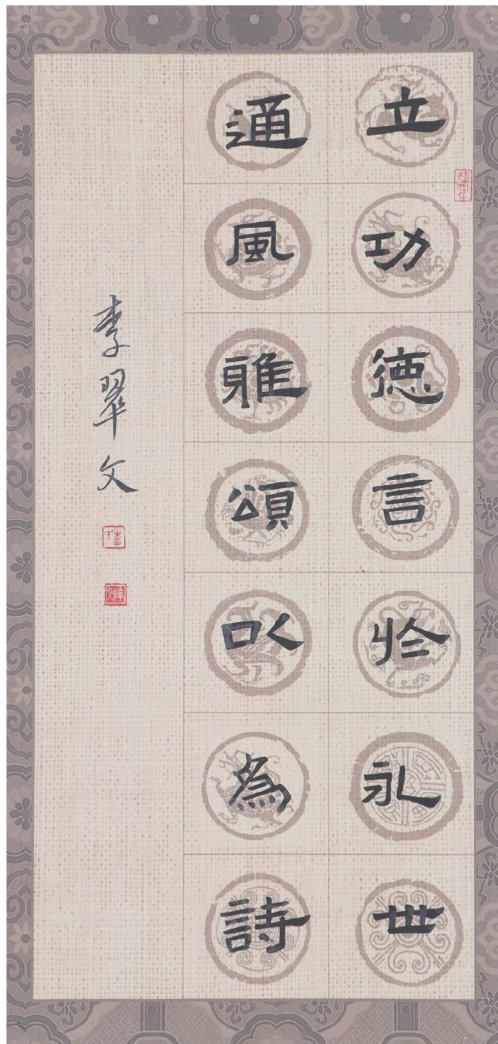 立功德言於永世
通風雅頌以為詩
李翠文